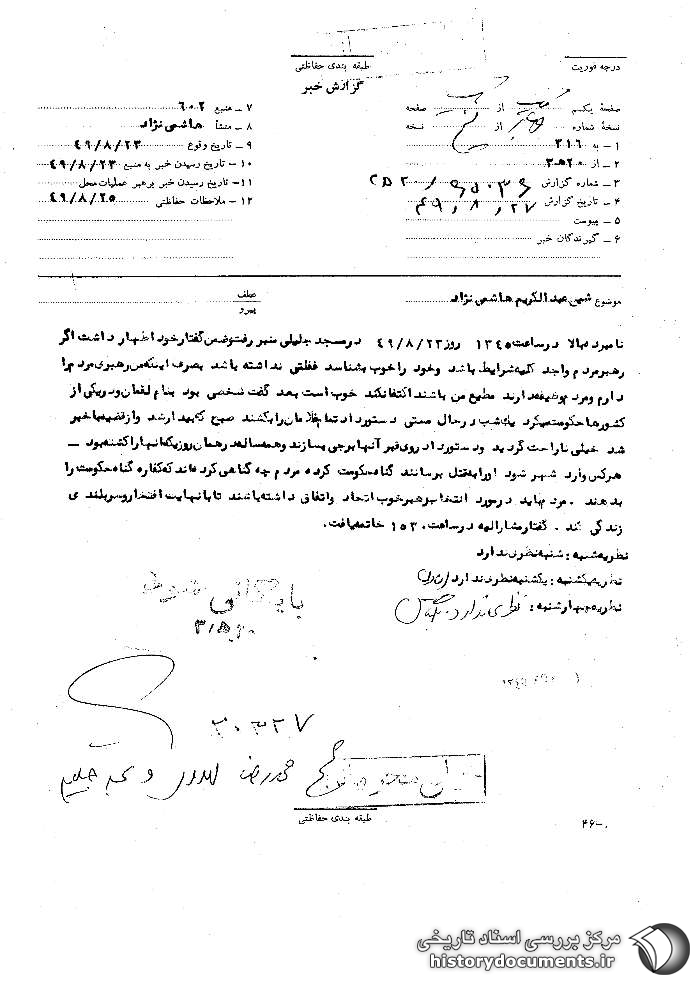 درجه فوریت
طبقه بندی حفاظتی
گزارش خبر
صفحهٔ یکم از صفحه
نسخهٔ شماره از نسخه
۱ – به ۳۱۶
۲ – از ۲۰ﻫ۳
۳ – شماره گزارش
۴ – تاریخ گزارش ۴۹/۸/۲۷
۵ – پیوست
۶ – گیرندگان خبر
۷ – منبع ۶۰۲
۸ – منشأ هاشمی نژاد
۹ – تاریخ وقوع ۴۹/۸/۲۳
۱۰ – تاریخ رسیدن خبر به منبع ۴۹/۸/۲۳
۱۱ – تاریخ رسیدن خبر برهبر عملیات محل
۱۲ – ملاحظات حفاظتی ۴۹/۸/۲۵
موضوع شیخ عبدالکریم هاشمی نژاد
عطف
پیرو
نامبرده بالا در ساعت ۱۳۴۵ روز ۴۹/۸/۲۳ در مسجد جلیلی منبر رفت و ضمن گفتار خود اظهار داشت اگر
رهبر مردم واجد کلیه شرایط باشد و خود را خوب بشناسد غفلتی نداشته باشد بصرف اینکه من رهبری مردم را
دارم و مردم وظیفه دارند مطیع من باشند اکتفا نکند خوب است بعد گفت شخصی بود بنام لقمان و در یکی از
کشورها حکومت میکرد یک شب در حال مستی دستور داد تمام غلامان را بکشند صبح که بیدار شد و از قضیه با خبر
شد خیلی ناراحت گردید و دستور داد روی قبر آنها برجی بسازند و همه ساله در همان روزیکه آنها را کشته بود –
هرکس وارد شهر شود او را به قتل برسانند گناه حکومت کرده مردم چه گناهی کرده اند که کفاره گناه حکومت را
بدهند . مردم باید در مورد انتخاب رهبر خوب اتحاد و اتفاق داشته باشند تا با نهایت افتخار و سربلندی
زندگی کنند . گفتار مشارالیه در ساعت ۱۵۳۰ خاتمه یافت.
نظریه شنبه : شنبه نظری ندارد
نظریه یکشنبه : یکشنبه نظری ندارد
نظریه چهارشنبه : نظری ندارد
بایگانی شود
۲۰۳۲۷
طبقه بندی حفاظتی
۴۶-۰
مرکز بررسی اسناد تاریخی
historydocuments.ir